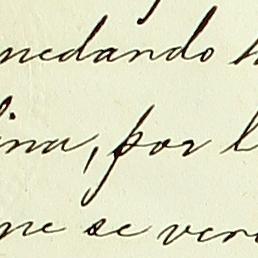 nedando h
lina, por l
ne se ver